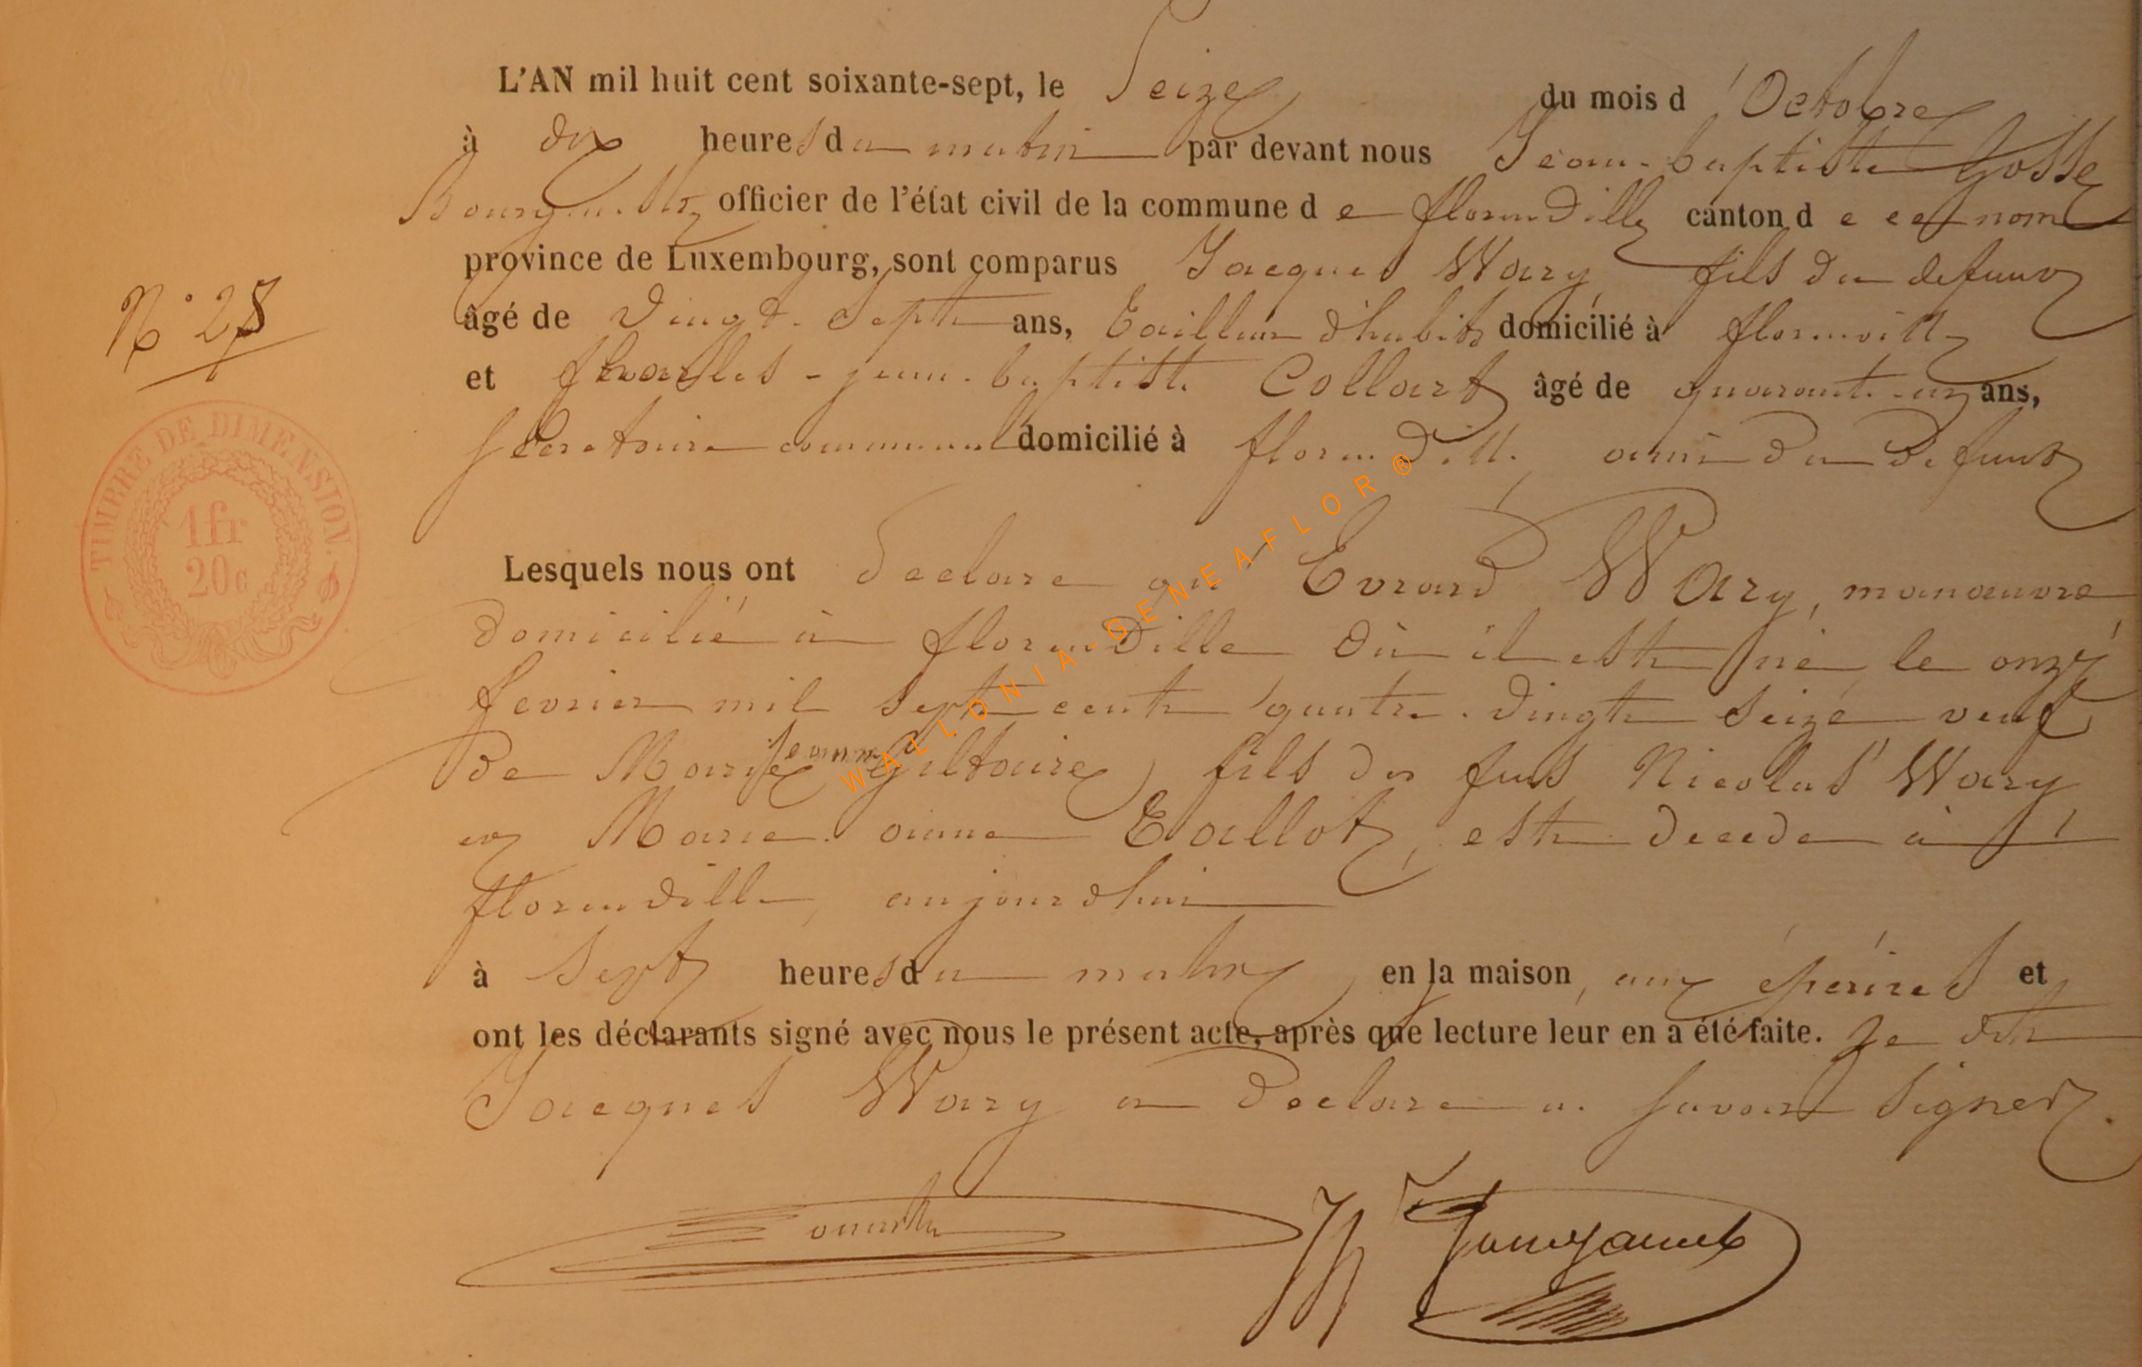 L'AN mil huit cent soixante-sept, le Seize du mois d'Octobre
à dix heures du matin par devant nous Jean-baptiste Gosse
Bourgmestre officier de l'état civil de la commune de florenville canton de ce nom
province de Luxembourg, sont comparus Jacques Wary fils du defunt
âgé de vingt-sept ans, tailleur d'habits domicilié à florenville
N° 28
et Charles-jean-baptiste Collart âgé de quarante-un ans,
secretaire communal domicilié à florenville, ami du defunt
TIMBRE DE DIMENSION.
1fr
20c
Lesquels nous ont declare que Evrard Wary, manœuvre
domicilié à florenville où il est né le onze
fevrier mil sept cent quatre-vingt seize veuf
de Marie Jeanne Giltaire, fils des feus Nicolas Wary
et Marie anne Tallot, est decede à
florenville, aujourd'hui
à sept heures du matin en la maison, et
ont les déclarants signé avec nous le présent acte, après que lecture leur en a été faite. Le dit
Jacques Wary a declare ne savoir signer.
WALLONIA-GENEAFLOR®